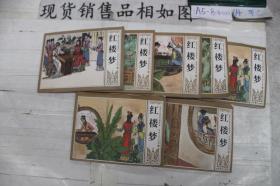 现货销售品相如图
红楼梦
红楼梦
红楼梦
红楼梦
红楼梦
红楼梦